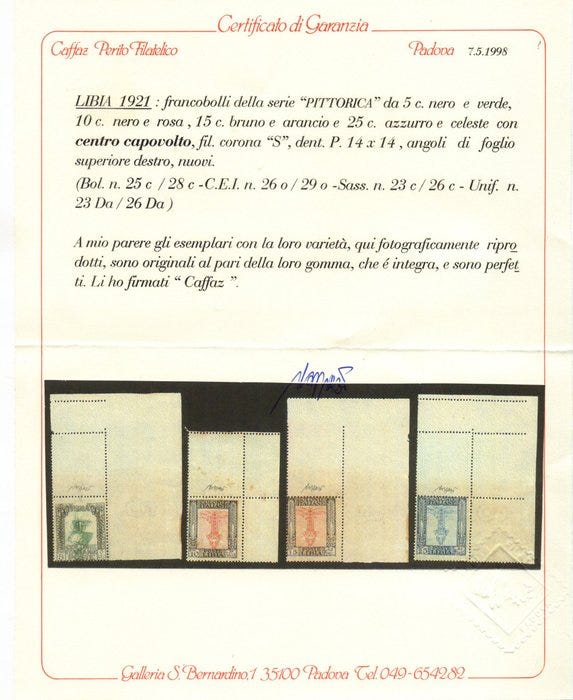 Certificato di Garanzia
Caffaz Perito Filatelico Padova 7.5.1998
LIBIA 1921 : francobolli della serie “PITTORICA” da 5 c. nero e verde,
10 c. nero e rosa , 15 c. bruno e arancio e 25 c. azzurro e celeste con
centro capovolto, fil. corona “S”, dent. P. 14 x 14 , angoli di foglio
superiore destro, nuovi.
(Bol. n. 25 c / 28 c -C.E.I. n. 26 o / 29 o -Sass. n. 23 c / 26 c - Unif. n.
23 Da / 26 Da )
A mio parere gli esemplari con la loro varietà, qui fotograficamente ripro
dotti, sono originali al pari della loro gomma, che é integra, e sono perfet
ti. Li ho firmati “ Caffaz ”.
Galleria S. Bernardino,1 35100 Padova Tel. 049-654282